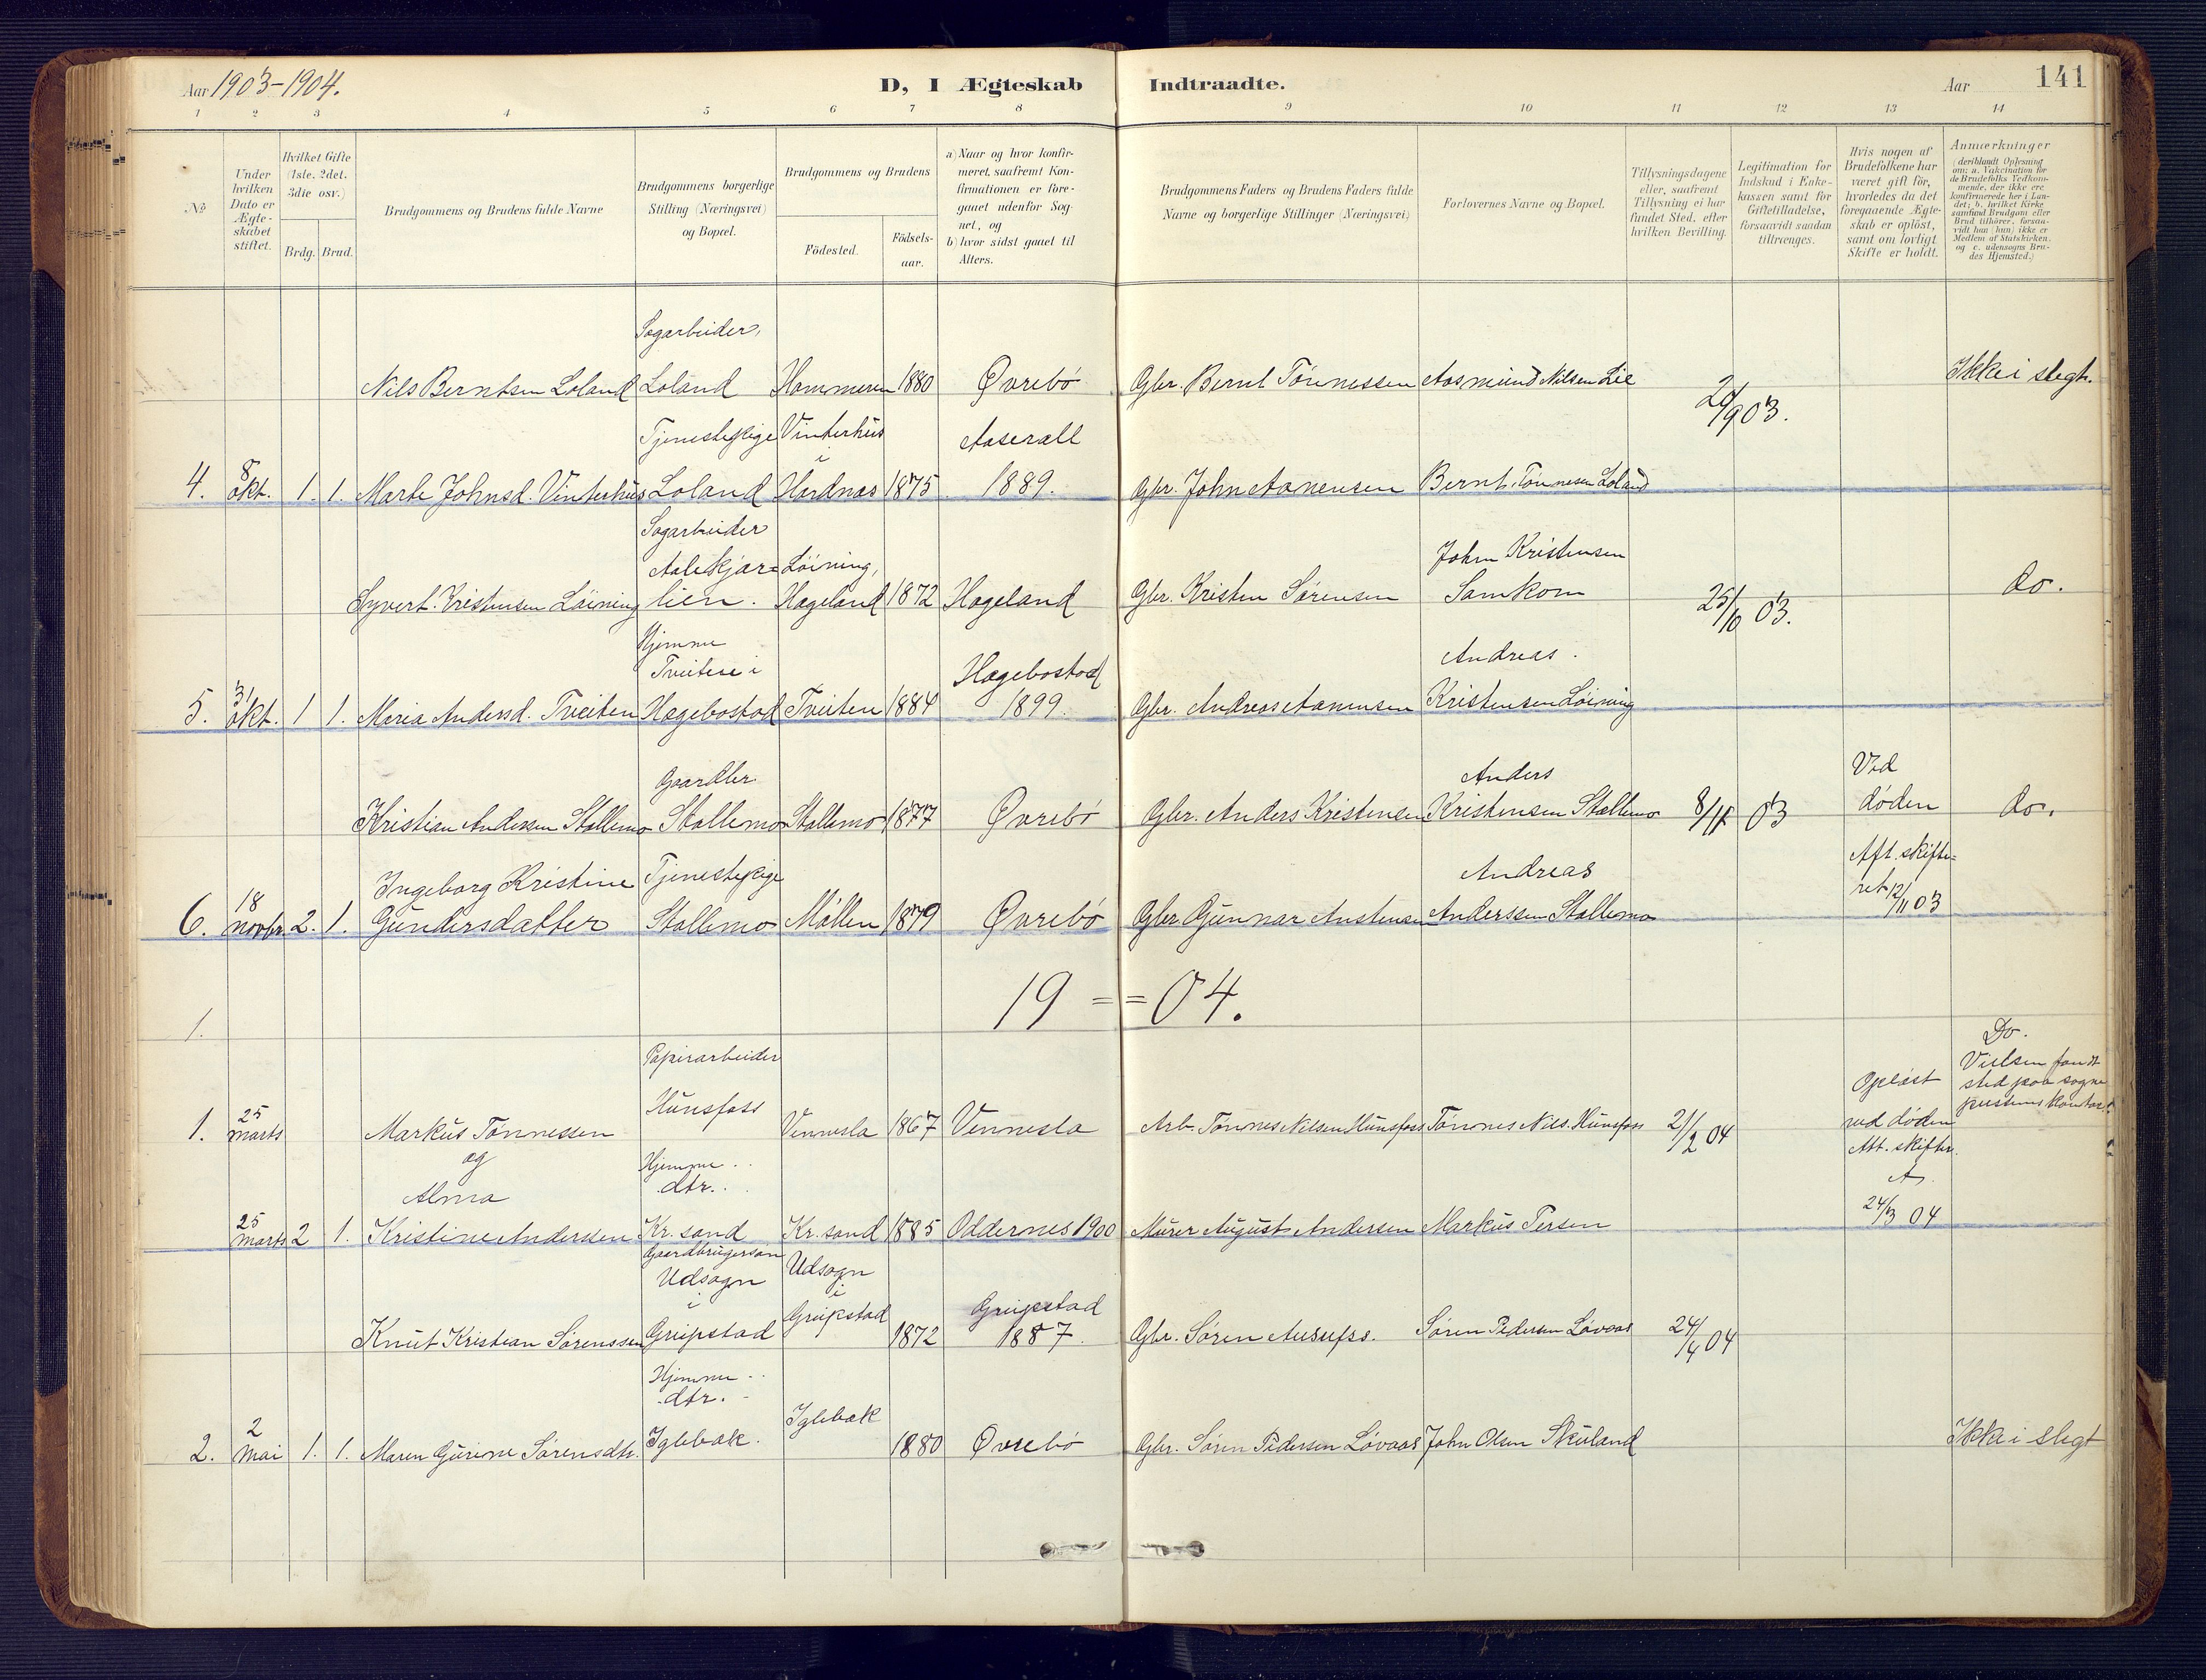 Aar 1903-1904.
D, I Ægteskab Indtraadte.
Aar 141
1 2 3 4 5 6 7 8 9 10 11 12 13 14
No
Under hvilken Dato er Ægteskabet stiftet.
Hvilket Gifte (1ste. 2det. 3die osv.)
Brdg. Brud.
Brudgommens og Brudens fulde Navne
Brudgommens borgerlige Stilling (Næringsvei) og Bopæl.
Brudgommens og Brudens
Födested.
Födselsaar.
a) Naar og hvor konfirmeret, saafremt Konfirmationen er foregaaet udenför Sognet, og
b) hvor sidst gaaet til Alters.
Brudgommens Faders og Brudens Faders fulde Navne og borgerlige Stillinger (Næringsvei)
Forlovernes Navne og Bopæl.
Tillysningsdagene eller, saafremt Tillysning ei har fundet Sted, efter hvilken Bevilling.
Legitimation for Indskud i Enkekassen samt for Giftetilladelse, forsaavidt saadan tiltrænges.
Hvis nogen af Brudefolkene har været gift för, hvorledes da det foregaaende Ægteskab er oplöst, samt om lovligt Skifte er holdt.
Anmærkninger
(deriblandt Oplysning om: a. Vaksination for de Brudefolks Vedkommende, der ikke ere konfirmerede her i Landet; b. hvilket Kirkesamfund Brudgom eller Brud tilhörer, forsaavidt han (hun) ikke er Medlem af Statskirken. og c. udensogns Brudes Hjemsted.)
Sagarbeider,
Nils Berntsen Loland Loland Hommeren 1880 Øvrebö Gbr. Bernt Tönnessen Aasmund Nilsen Lie 20/9 03. Ikke i slegt.
Tjenestepige Vinterhus Aaserall
4. 8 okt. 1. 1. Marte Johnsd. Vinterhus Loland i Hordnæs 1875 1889. Gbr. John Aanensen Bernt Tönnesen Loland
Sagarbeider
Aalekjær= Löining, John Kristensen
Syvert Kristensen Löining lien. Hægeland 1872 Hægeland Gbr. Kristen Sörensen Samkom 25/10 03. do.
Hjemme
Tveiten i Hægebostad Andreas
5. 31 okt. 1 1. Maria Andersd. Tveiten Hægebostad Tveiten 1884 1899. Gbr. Andreas Aanensen Kristensen Löining
Gaardbr. Anders Ved
Kristian Andersen Stallemo Stallemo Stallemo 1877 Øvrebö Gbr. Anders Kristensen Kristensen Stallemo 8/11 03 döden do.
Ingeborg Kristine Tjenestepige Andreas Aft. skifte=
6. 18 novbr. 2. 1. Gundersdatter Stallemo Möllen 1879 Øvrebö Gbr. Gunnar Austensen Anderssen Stallemo ret 12/11 03
19 = = 04.
1.
Do.
Papirarbeider Vielsen fandt
Oplöst sted paa sogne
Hunsfoss prestens kontor.
1. 25 marts Markus Tönnessen Vennesla 1867 Vennesla Arb. Tönnes Nilsen Hunsfoss Tönnes Nils. Hunsfoss 21/2 04 ved döden
og Hjemme.. Att. skifter.
Alma dtr..
25 marts 2 1. Kristine Anderssen Kr. sand Kr. sand 1885 Oddernes 1900 Murer August Andersen Markus Tersen 24/3 04
Gaardbrugersøn
Udsogn Udsogn
i i Greipstad
Knut Kristian Sörenssen Greipstad Greipstad 1872 1887. Gbr. Sören Ausufss. Sören Pedersen Lövaas 24/4 04
Hjemme..
dtr. Iglebæk
2. 2 mai 1. 1. Maren Gurine Sörensdtr. Iglebæk. 1880 Øvrebö Gbr. Sören Pedersen Lövaas John Olsen Skuland Ikke i slegt